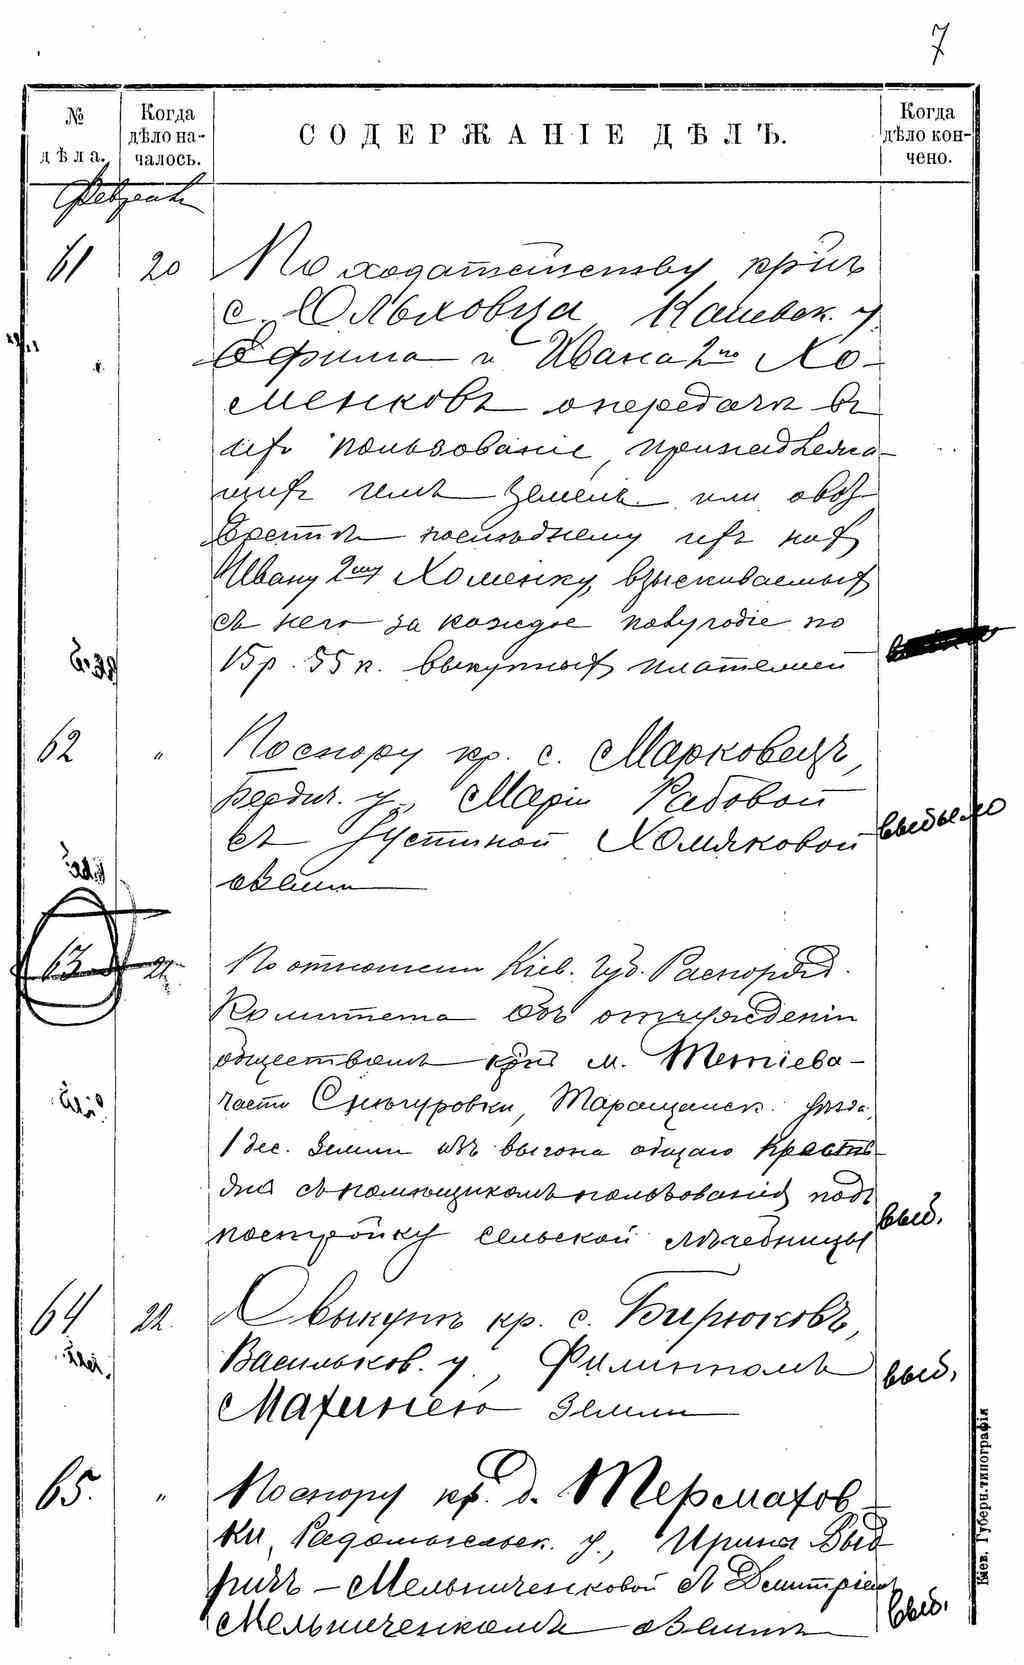 7
№ дѣла.
Когда дѣло началось.
СОДЕРЖАНІЕ ДѢЛЪ.
Когда дѣло кончено.
Февраль
61 20 По ходатайству кр-нъ
с. Ольховца, Каневск. у.
Ефима и Ивана 2го Хо-
менковъ о передачѣ въ
ихъ пользованіе, принадлежа-
щихъ имъ земель или о воз-
вратѣ послѣднему изъ нихъ
Ивану 2му Хоменку, взыскиваемыхъ
съ него за каждое полугодіе по
15 р. 55 к. выкупныхъ платежей
62 " По спору кр. с. Марковецъ,
Бердич. у., Маріи Рабовой
съ Устиной Хомяковой
о земли
выбыло
63 21 По отношенію Кіев. Губ. Распоряд.
Комитета объ отчужденіи
обществомъ кр-нъ м. Тетіева-
части Снѣгуровки, Таращанск. уѣзда,
1 дес. земли изъ выгона общаго кресть-
янъ съ помѣщикомъ пользованія подъ
постройку сельской лѣчебницы
выб.
64 22. О выкупѣ кр. с. Бирюковъ,
Васильков. у., Филиппомъ
Махинею земли
выб.
65. " По спору кр. д. Термахов-
ки, Радомысльск. у., Ирины Выд-
ричъ-Мельниченковой съ Дмитріемъ
Мельниченкомъ о землѣ
выб.
Кіев. Губерн. типографія